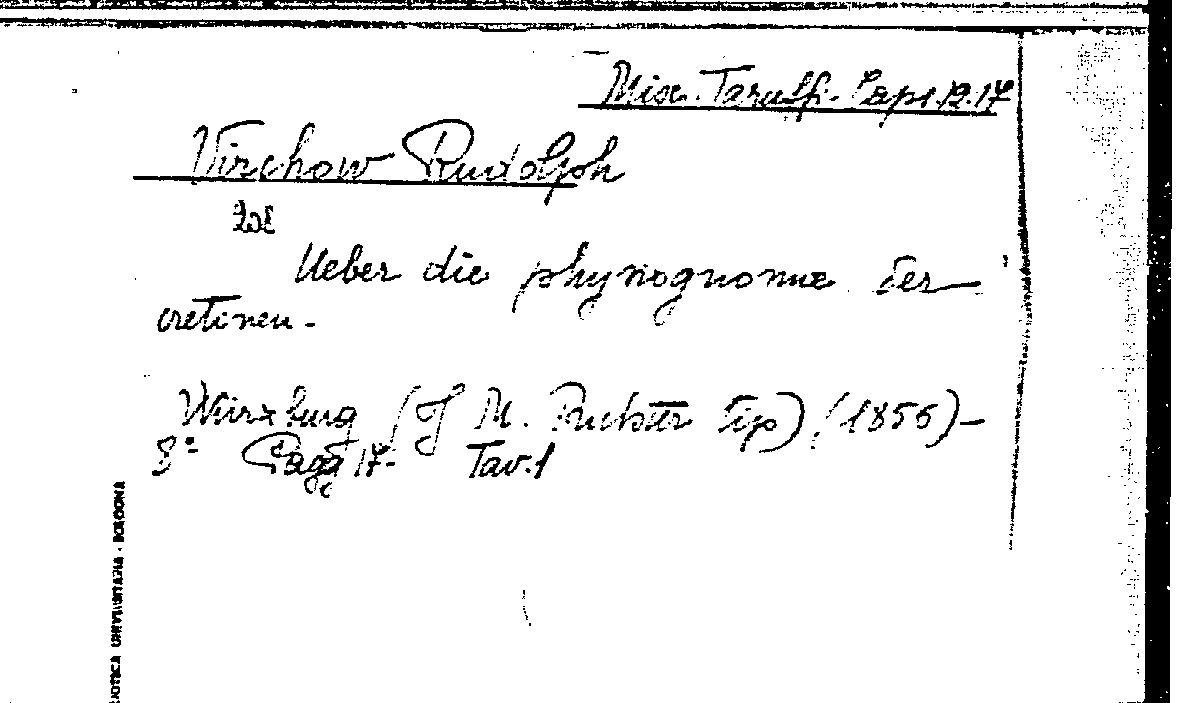 Misc. Taruffi. Caps. B. 17
Virchow Rudolph
Ueber die physiognomie der
cretinen -
Würzburg (J M. Richter tip) (1856) -
8° Pagg 17 - Tav. 1
BIOTECA UNIVERSITARIA - BOLOGNA